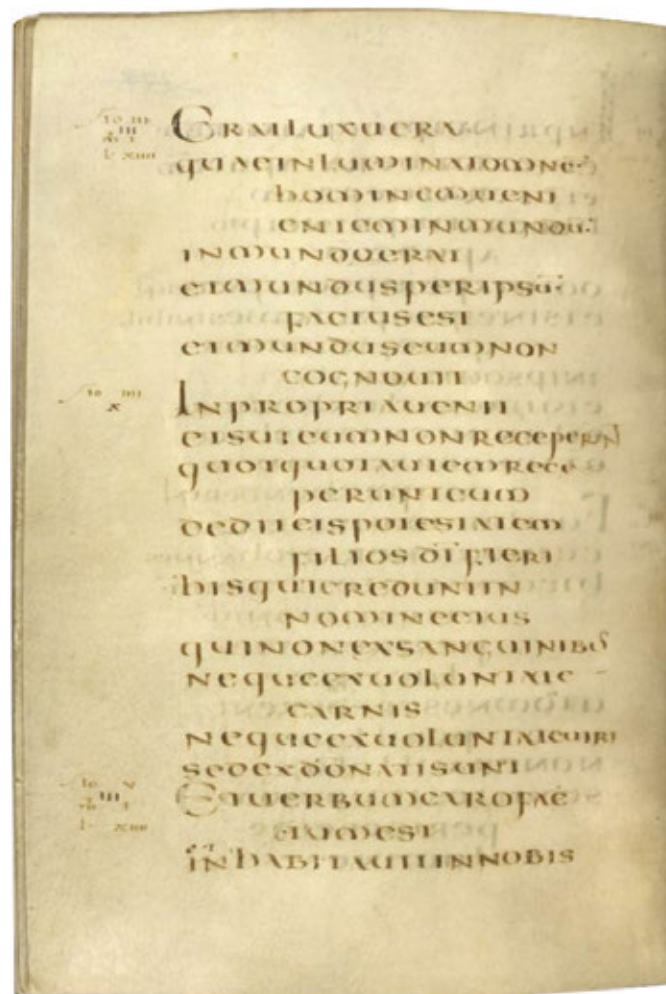 ERATLUXUERA
QUAEINLUMINATOMNE
HOMINEMUENI
ENTEMINMUNDU
INMUNDOERAT
ETMUNDUSPERIPSŪ
FACTUSEST
ETMUNDUSEUMNON
COGNOUIT
INPROPRIAUENIT
ETSUIEUMNONRECEPERUNT
QUOTQUOTAUTEMRECE
PERUNTEUM
DEDITEISPOTESTATEM
FILIOSDĪFIERI
HISQUICREDUNTIN
NOMINEEIUS
QUINONEXSANGUINIB
NEQUEEXUOLONTATE
CARNIS
NEQUEEXUOLUNTATEUIRI
SEDEXDONATISUNT
ETUERBUMCAROFAC
TUMEST
INHABITAUITINNOBIS